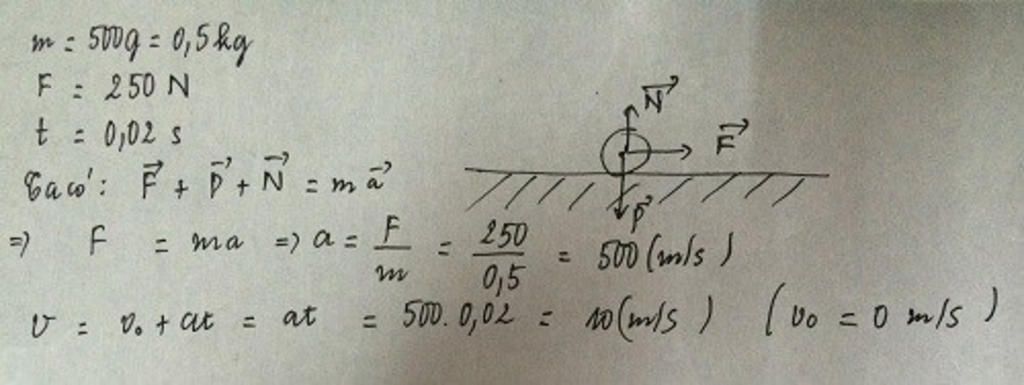 m = 500g = 0,5kg
F = 250 N
t = 0,02 s
Ta có: F⃗ + P⃗ + N⃗ = m a⃗
=> F = ma => a = F/m = 250/0,5 = 500 (m/s)
v = v₀ + at = at = 500.0,02 = 10 (m/s) (v₀ = 0 m/s)
N⃗
F⃗
P⃗